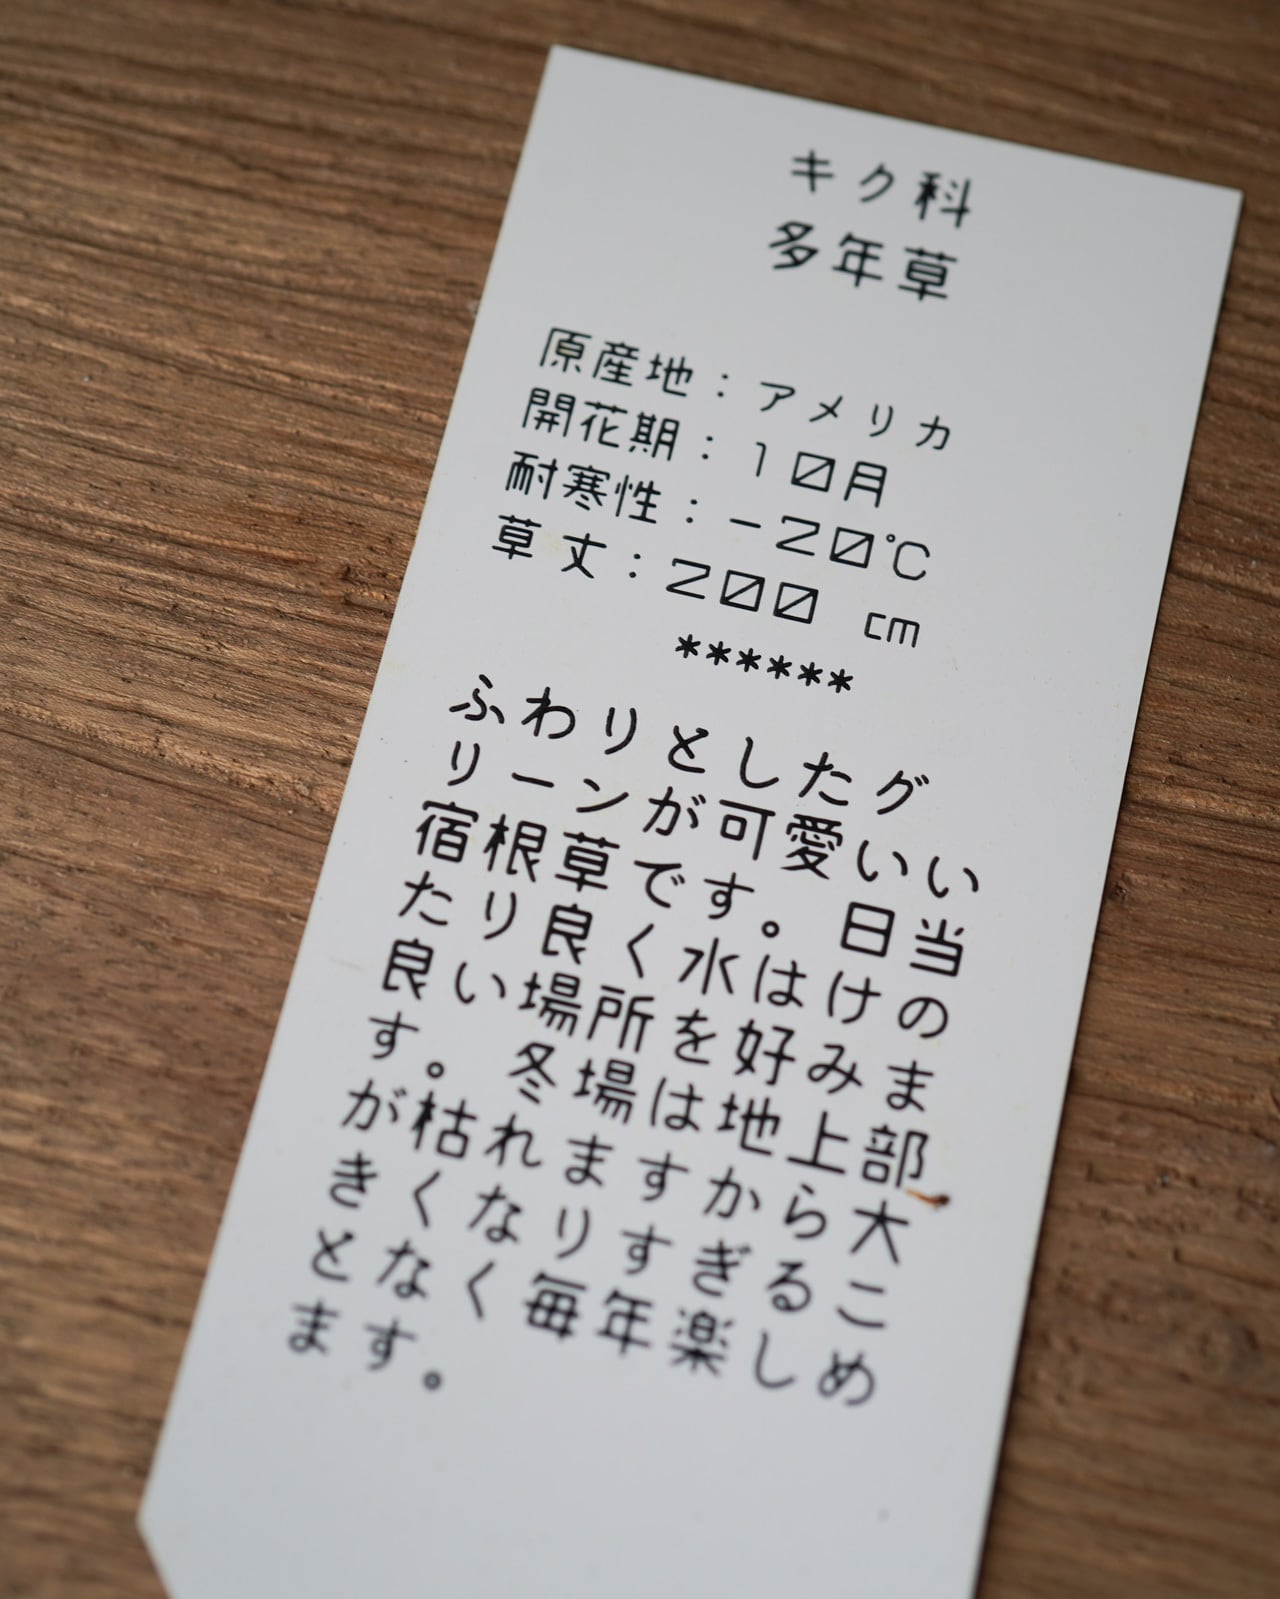 キク科
多年草
原産地：アメリカ
開花期：10月
耐寒性：－20℃
草丈：200 cm
******
ふわりとしたグ
リーンが可愛いい
宿根草です。日当
たり良く水はけの
良い場所を好みま
す。冬場は地上部
が枯れますから大
きくなりすぎるこ
となく毎年楽しめ
ます。